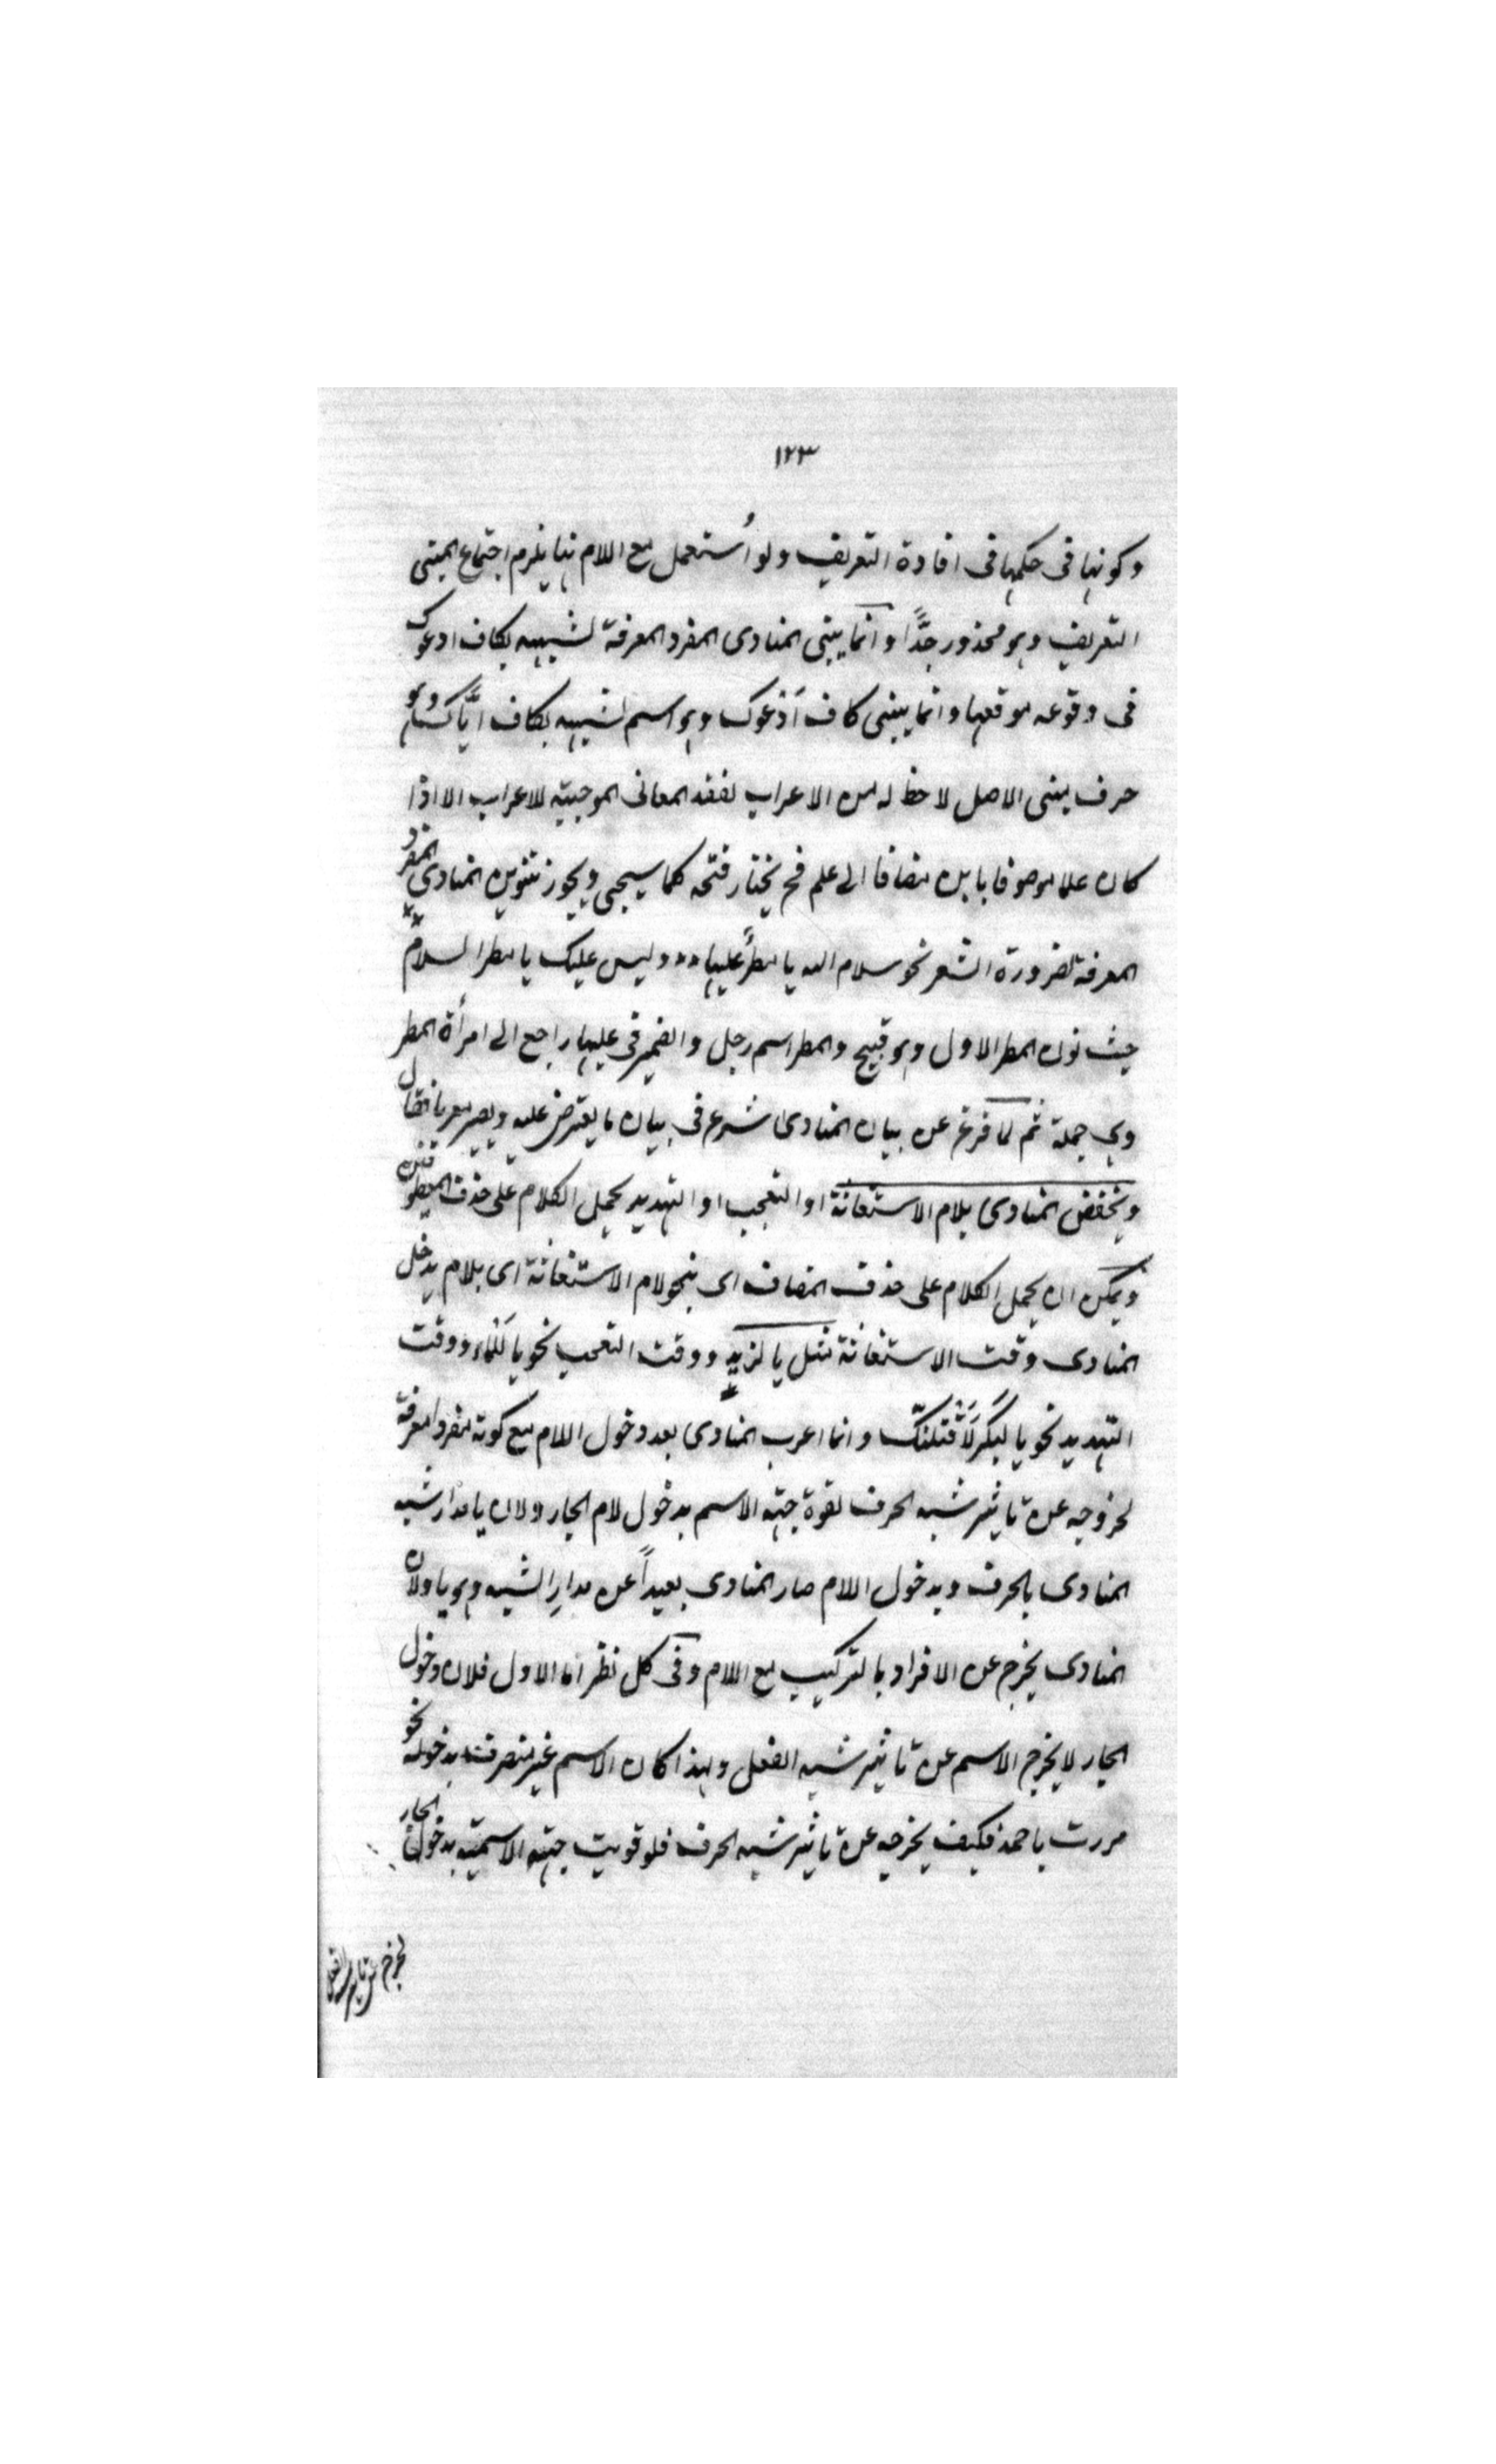 ١٢٣
وكونها فى حكمها فى افادة التعريف ولو اُستعمل مع اللام ههنا يلزم اجتماع
التعريف وهو محذور جدًّا وانما يبنى المنادى المفرد المعرفة لشبهه بكاف ادعوك
فى وقوعه موقعها وانما يبنى كاف اَدْعوك وهو اسم لشبهه بكاف ايَّاك وهو
حرف مبنى الاصل لا حظ له من الاعراب لفقد المعانى الموجبة للاعراب الا اذا
كان علما موصوفا بابن مضافا الى علم فح يختار فتحه كما سيجىء ويجوز تنوين المنادى المفرد
المعرفة لضرورة الشعر نحو سلام الله يا مطرٌ عليها وليس عليك يا مطر السلام
حيث نون المطر الاول وهو قبيح والمطر اسم رجل والضمير فى عليها راجع الى امرأة المطر
وهى جملة ثم لما فرغ عن بيان المنادى شرع فى بيان ما يعترض عليه ويصير معربا فقال
ويخفض المنادى بلام الاستغاثة او التعجب او التهديد يحمل الكلام على حذف المعطوفين
ويمكن ان يحمل الكلام على حذف المضاف اى بنحو لام الاستغاثة اى بلام يدخل
المنادى وقت الاستغاثة مثل يا لزيد ووقت التعجب نحو يا لَلماء ووقت
التهديد نحو يا لَبكر لَاَقتلنّك وانما اعرب المنادى بعد دخول اللام مع كونه مفردا معرفة
لخروجه عن تاثير شبه الحرف لقوة جهة الاسم بدخول لام الجار ولان يا مدار شبه
المنادى بالحرف وبدخول اللام صار المنادى بعيداً عن مدار الشبه وهو يا ولان
المنادى يخرج عن الافراد بالتركيب مع اللام وفى كل نظر اما الاول فلان دخول
الجار لا يخرج الاسم عن تاثير شبه الفعل ولهذا كان الاسم غير منصرف بدخوله نحو
مررت باحمد فكيف يخرجه عن تاثير شبه الحرف فلو قويت جهة الاسمية بدخول الجار
لخرج عن تاثير